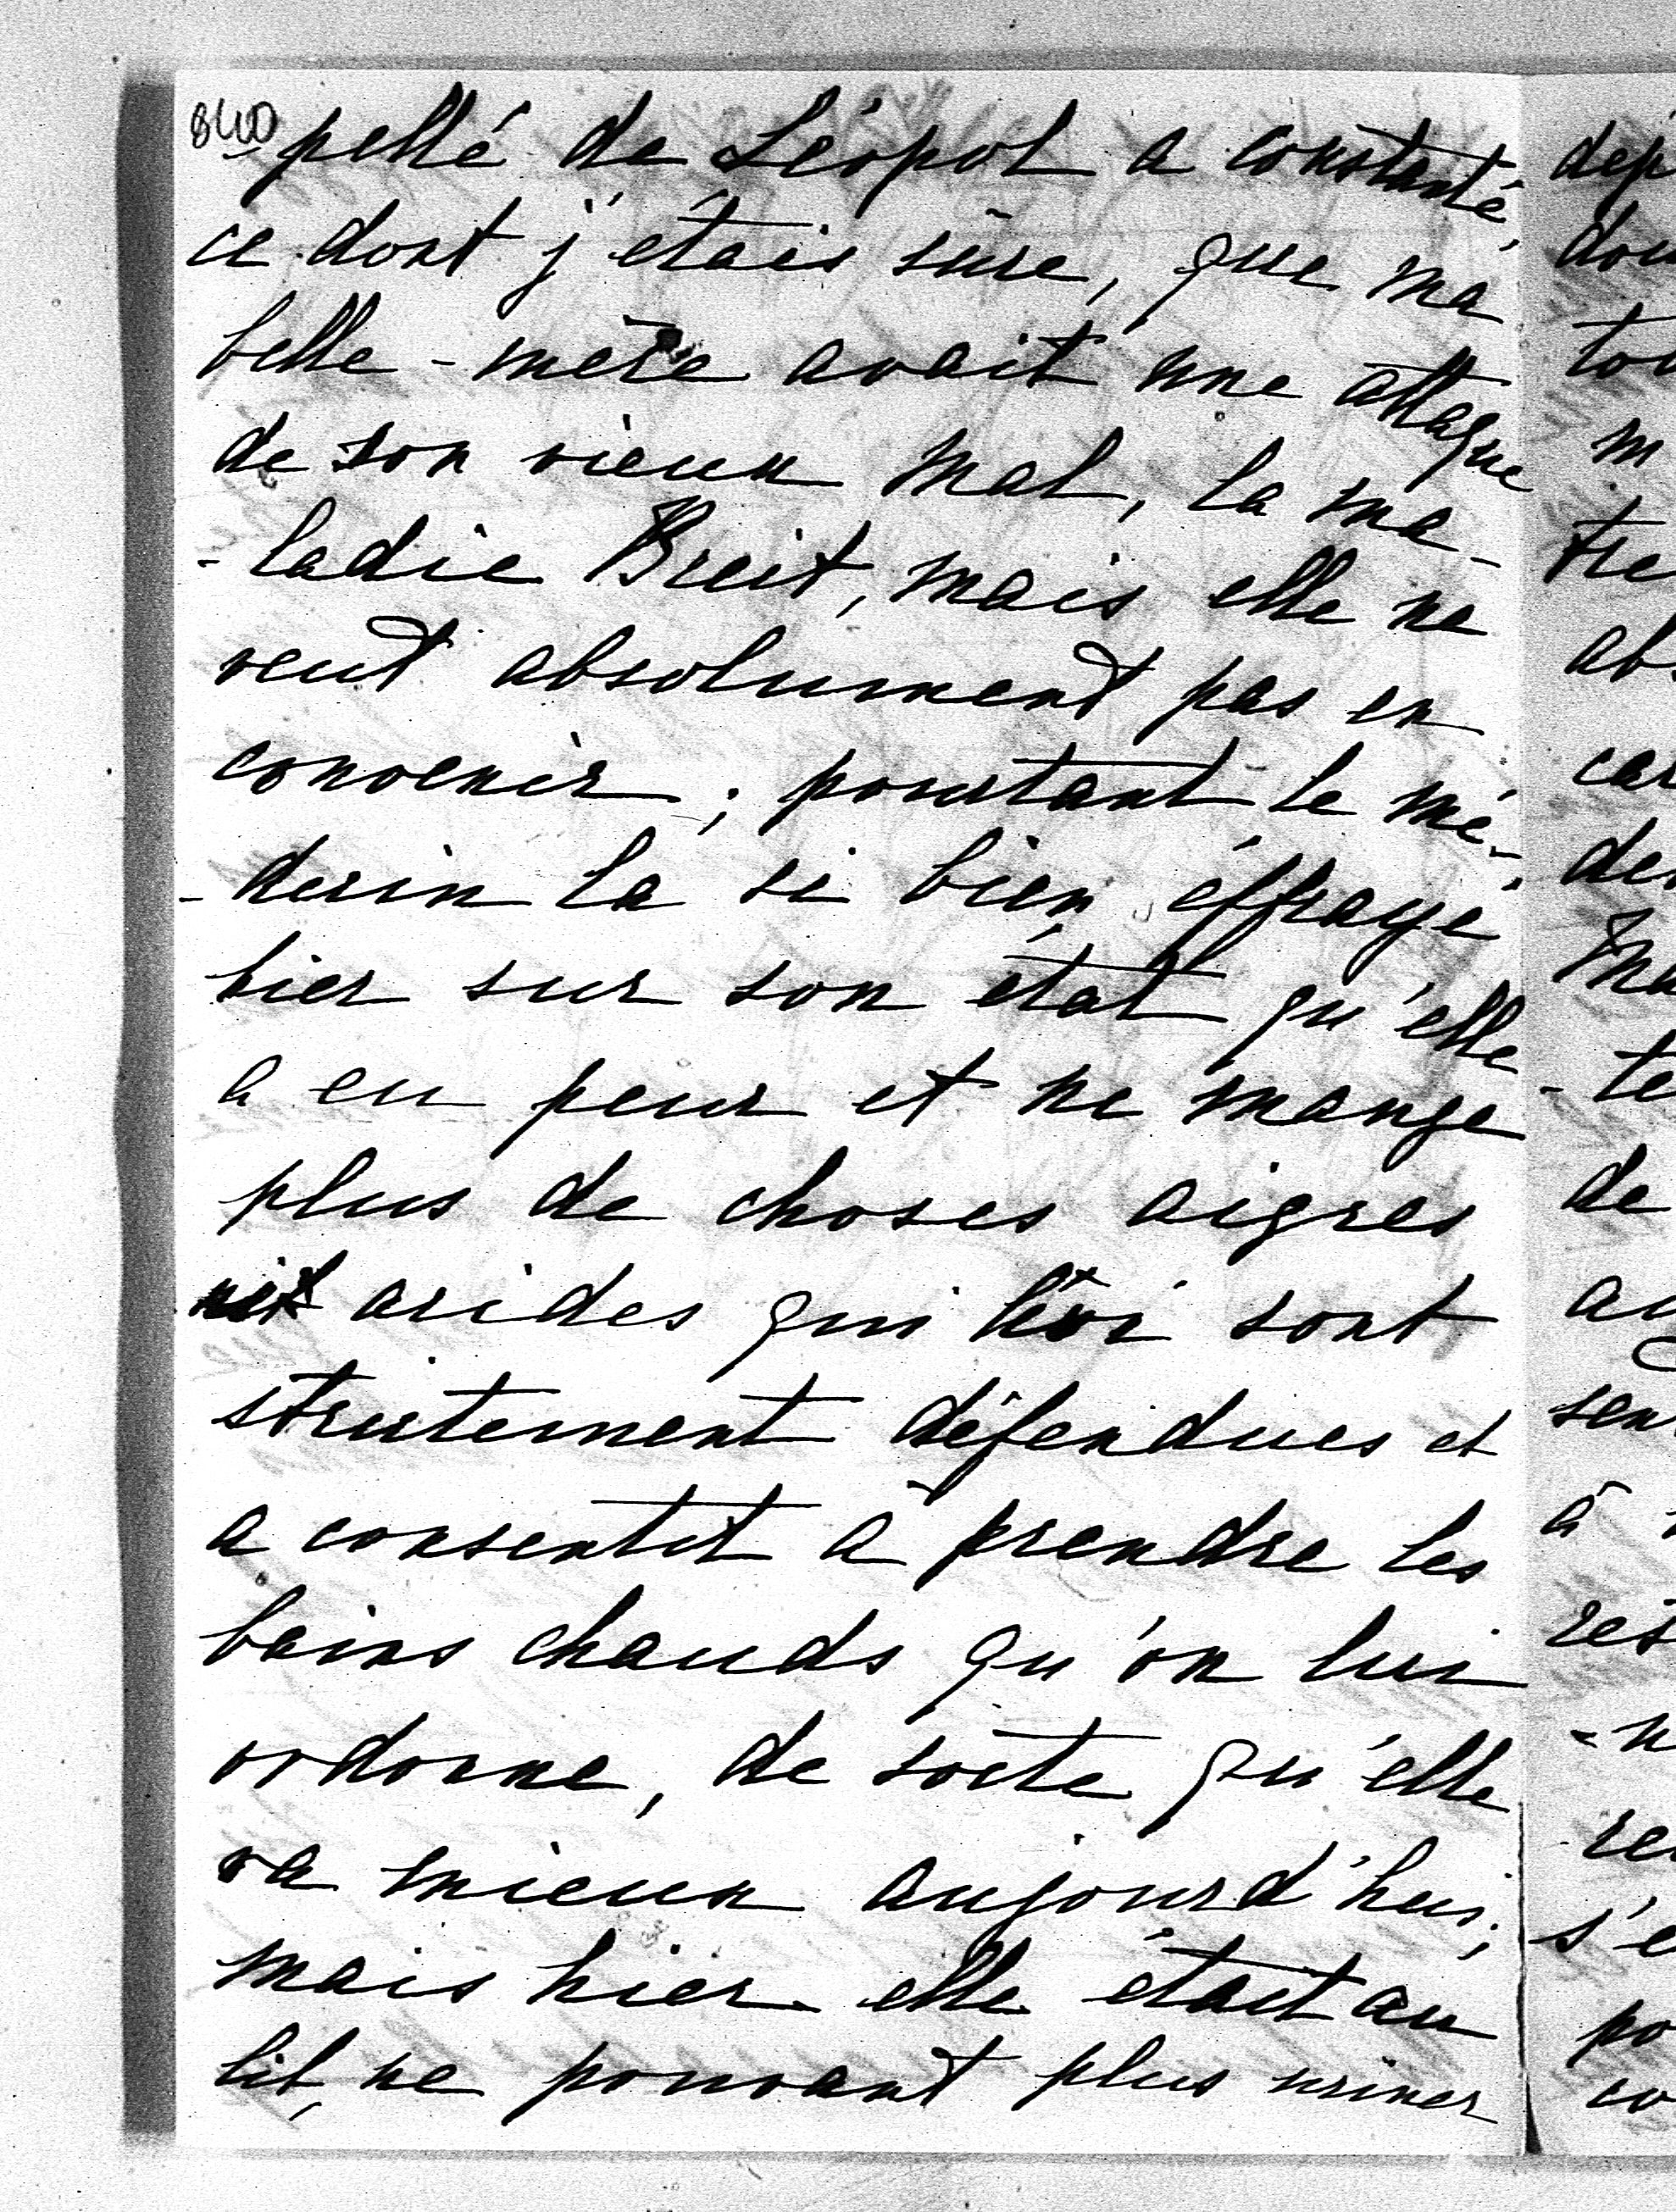 840
-pellé de Léopol a constanté,
ce dont j'étais sûre, que ma
belle-mère avait une attaque
de son vieux mal, la ma-
-ladie Breit, mais elle ne
veut absolument pas en
convenir; pourtant le mé-
-decin la si bien éffrayé
hier sur son état qu'elle
a eu peur et ne mange
plus de choses aigres
acides qui lui sont
strictement défendues et
a consentit à prendre les
bains chauds qu'on lui
ordonne, de sorte qu'elle
va mieux aujourd'hui;
mais hier elle était au
lit, ne pouvant plus uriner